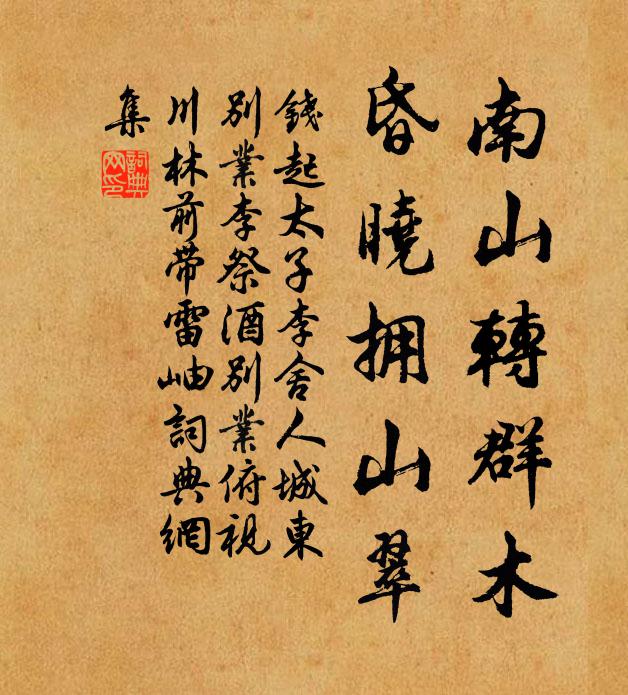 南山轉群木
昏曉拥山翠
錢起太子李舍人城東
別業李祭酒別業俯視
川林前带雷岫詞典網
集
詞典网印